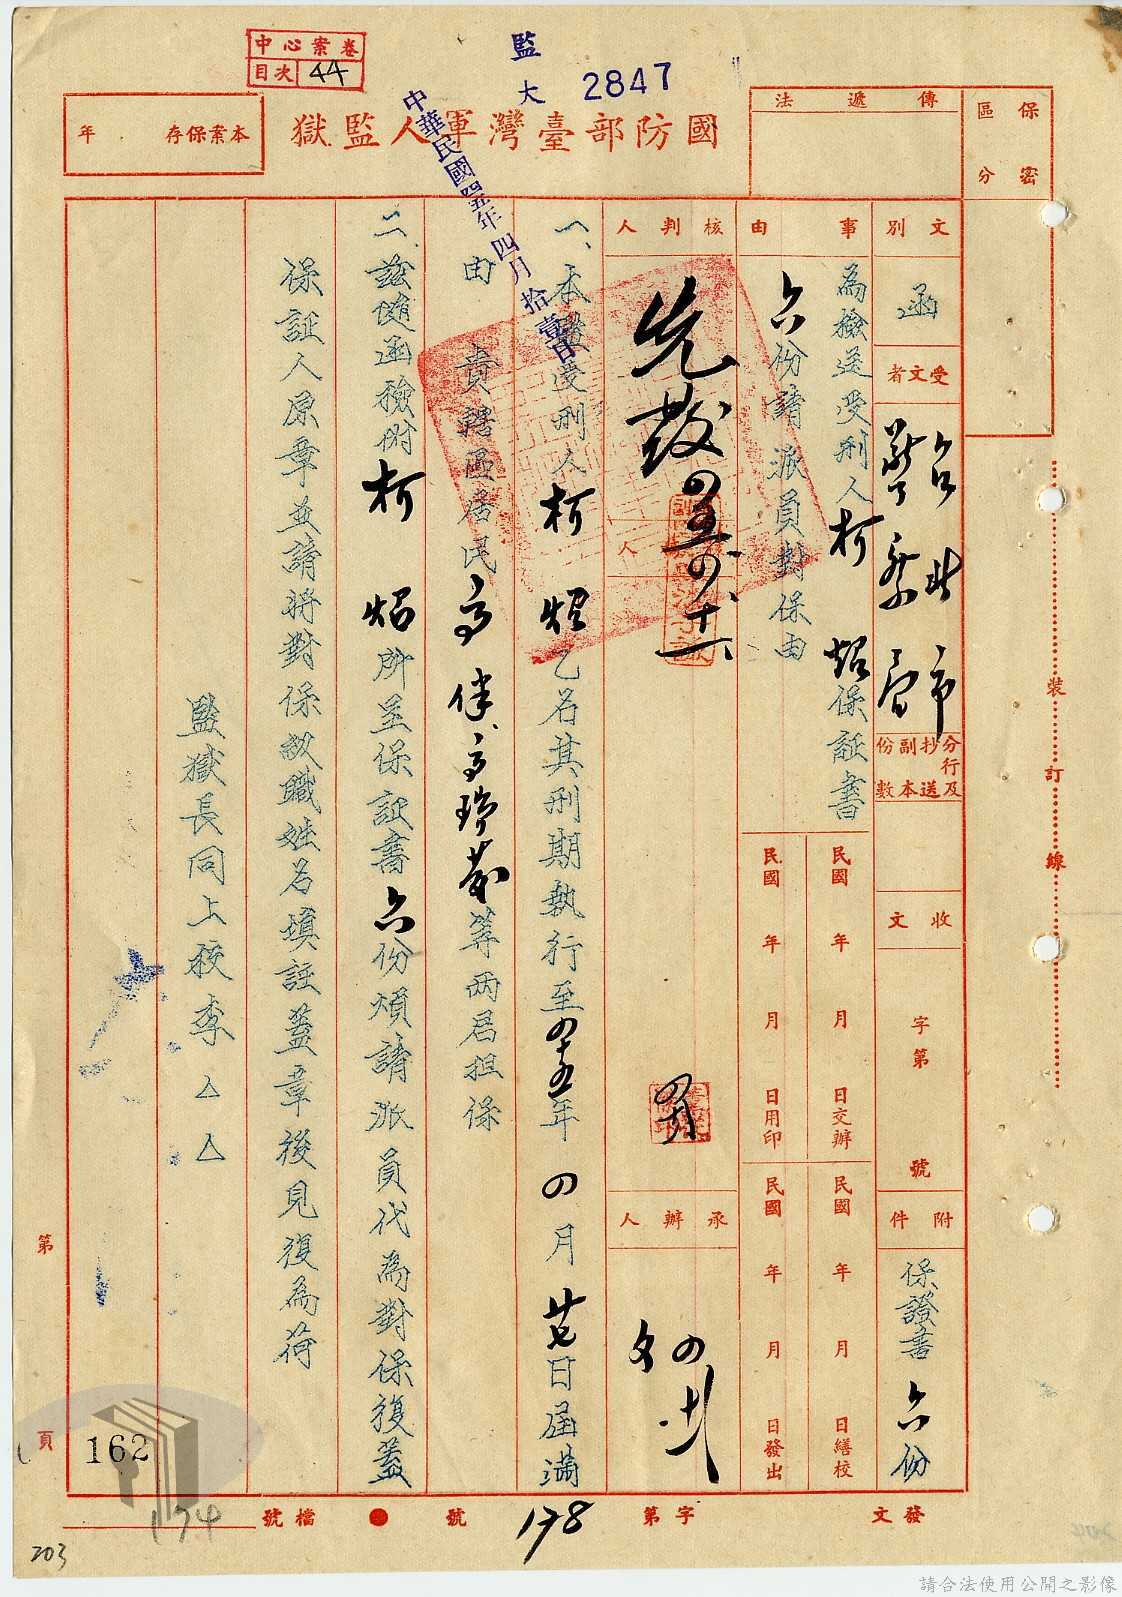 中心案卷
目次 44
監
大 2847
中華民國四五年四月拾壹日
國防部臺灣軍人監獄
本案保存 年
傳遞法
保密區分
文別
函
受文者
台北市
警察局
分行及抄送副本份數
收文
字第
號
附件
保證書六份
事由
為檢送受刑人柯 炤保証書
六份請派員對保由
民國 年 月 日交辦
民國 年 月 日繕校
民國 年 月 日用印
民國 年 月 日發出
核判人
先發
四五 四 十一
承辦人
一、本監受刑人柯 炤乙名其刑期執行至四十五年四月廿七日屆滿
由 貴轄區居民高 等兩君担保
二、茲隨函檢附柯 炤所呈保証書六份煩請派員代為對保復蓋
保証人原章並請將對保級職姓名填註蓋章後見復為荷
監獄長同上校李 △ △
裝訂線
第
頁
162
174
203
發文
字第
178
號
檔號
請合法使用公開之影像